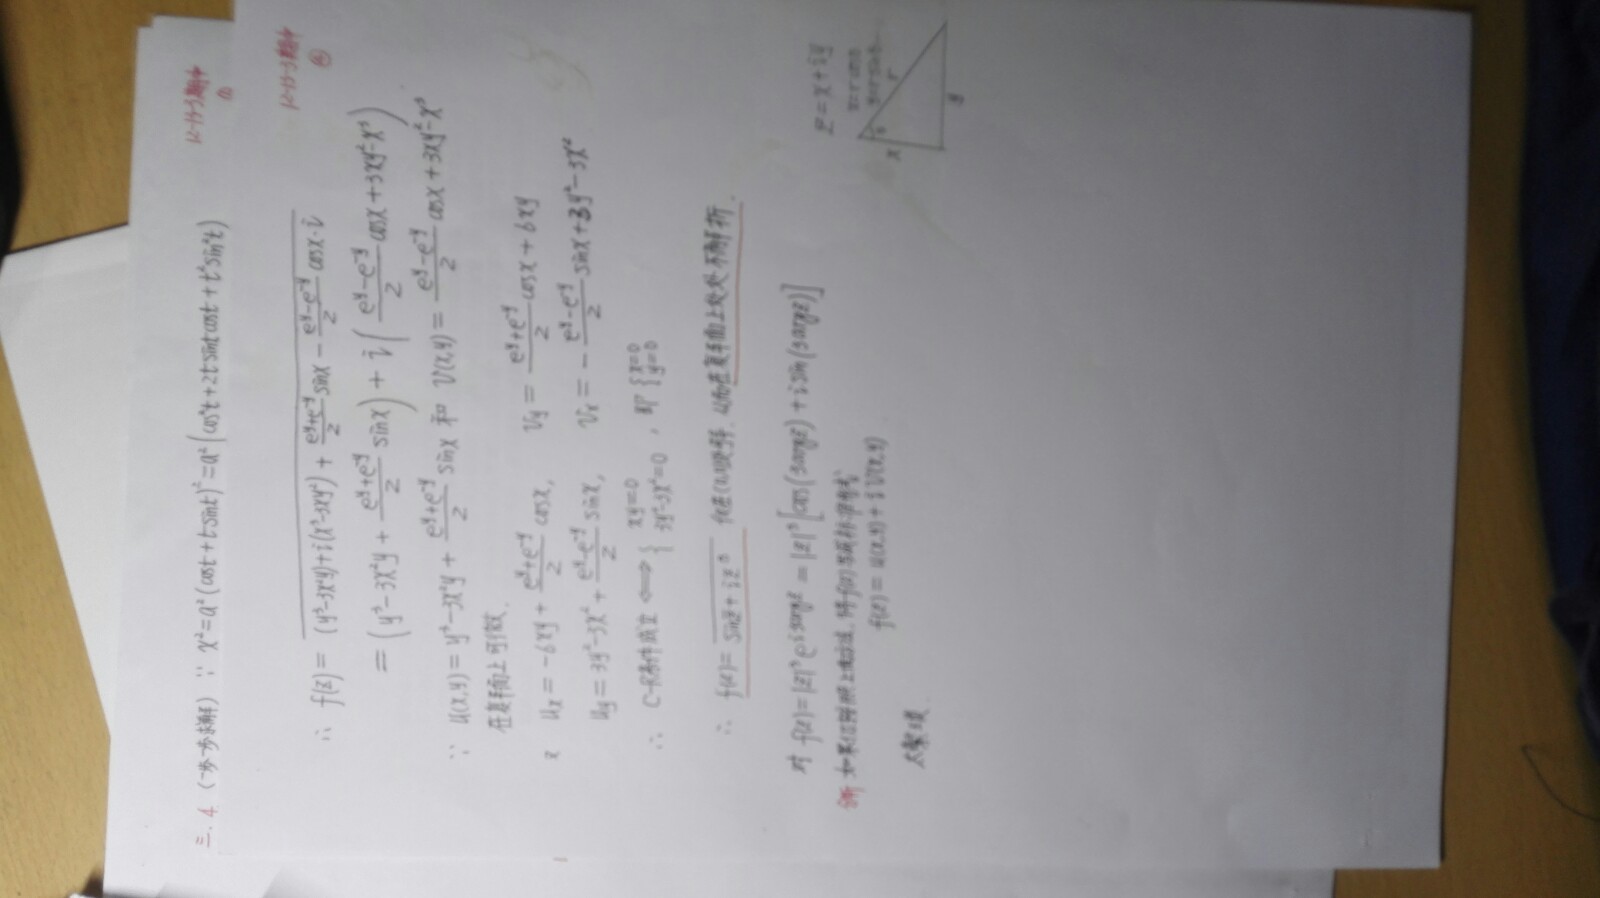 12-13-3期中
①
三.4 (一步一步求解) ∵ x²=a²(cost+t sint)²=a²(cos²t+2t sint cost+t²sin²t)
12-13-3期中
∴ f(z)= (y³-3x²y)+i(x³-3xy²) + \frac{e^y+e^{-y}}{2} sinx - \frac{e^y-e^{-y}}{2} cosx·i
= (y³-3x²y + \frac{e^y+e^{-y}}{2} sinx) + i(\frac{e^y-e^{-y}}{2} cosx+3xy²-x³)
∵ u(x,y)=y³-3x²y + \frac{e^y+e^{-y}}{2} sinx 和 v(x,y)= \frac{e^y-e^{-y}}{2} cosx+3xy²-x³
在复平面上可微
u_x=-6xy+ \frac{e^y+e^{-y}}{2} cosx, v_y= \frac{e^y+e^{-y}}{2} cosx+6xy
u_y=3y²-3x²+ \frac{e^y-e^{-y}}{2} sinx, v_x=- \frac{e^y-e^{-y}}{2} sinx+3y²-3x²
∴ C-R条件成立 ⟺ { xy=0 3y²-3x²=0 , 即 { x=0 y=0
∴ f(z)= \overline{sinz+iz³} 仅在(0,0)处可导, 从而在复平面上处处不解析.
对 f(z)=|z|³e^{i3argz} =|z|³[cos(3argz)+i sin(3argz)]
f(z)=u(x,y)+iv(x,y)
z=x+iy
x=rcosθ
y=rsinθ
r
θ
x
y